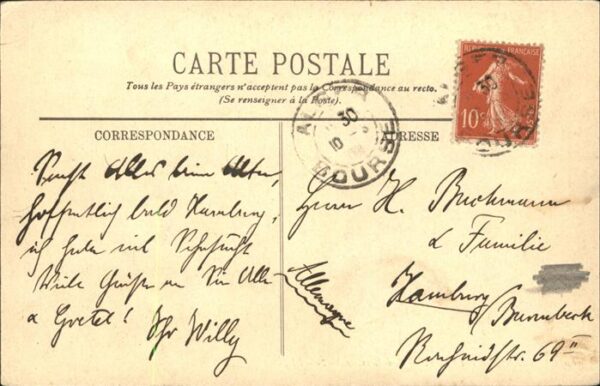 CARTE POSTALE
Tous les Pays étrangers n'acceptent pas la Correspondance au recto.
(Se renseigner à la Poste).
CORRESPONDANCE
ADRESSE
RÉPUBLIQUE FRANÇAISE
10
ALGER
30
10
BOURSE
30
Sonst Alles beim Alten,
hoffentlich bald Hamburg,
ich habe viel Sehnsucht
Viele Grüße an Sie Alle
& Gretel! Ihr Willy
Herrn H. Buchmann
& Familie
Hamburg
Barmbeck
69 II
Allemagne